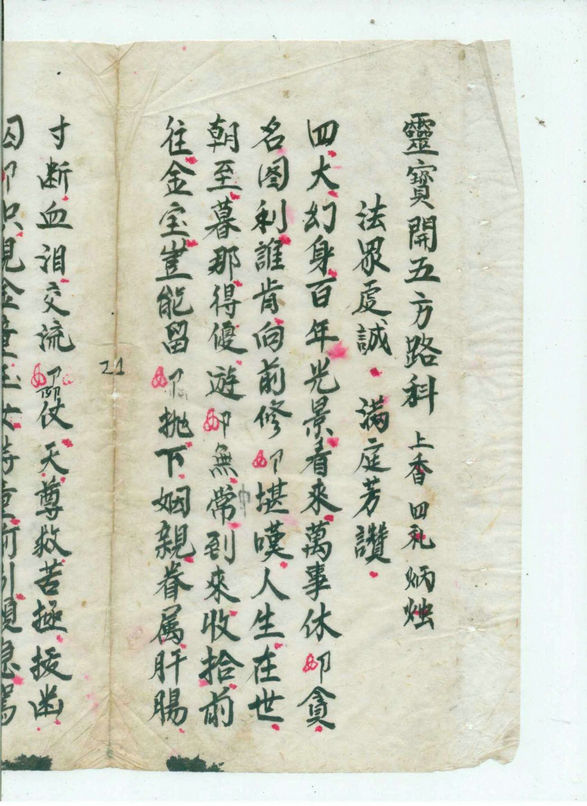 靈寶開五方路科 上香 四礼 炳烛
法眾虔誠 滿庭芳讚
四大幻身百年光景看來萬事休卬貪
名圖利誰肯向前修卬堪嘆人生在世
朝至暮那得優遊卬無常到來收拾前
往金宝豈能留卬抛下姻親眷属肝腸
寸断血泪交流卬仗天尊救苦極拔幽
21